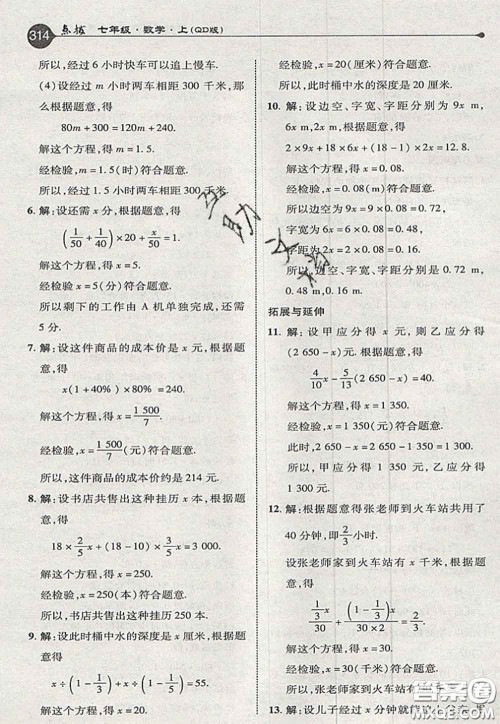 314 点拨 七年级·数学·上(QD版)
所以,经过 6 小时快车可以追上慢车.
(4) 设经过 m 小时两车相距 300 千米,那
么根据题意,得
80m+300=120m+240.
解这个方程,得 m=1.5.
经检验,m=1.5(时)符合题意.
所以,经过 1.5 小时两车相距 300 千米.
6. 解:设还需 x 分,根据题意,得
(1/50+1/40)×20+x/50=1.
解这个方程,得 x=5.
经检验,x=5(分)符合题意.
所以剩下的工作由 A 机单独完成,还需
5 分.
7. 解:设这件商品的成本价是 x 元,根据题
意,得
x(1+40%)×80%=240.
解这个方程,得 x=1 500/7.
经检验,x=1 500/7(元)符合题意.
所以,这件商品的成本价约是 214 元.
8. 解:设书店共售出这种挂历 x 本,根据题
意,得
18×2/5x+(18-10)×3/5x=3 000.
解这个方程,得 x=250.
经检验,x=250(本)符合题意.
所以,书店共售出这种挂历 250 本.
9. 解:设此时桶中水的深度是 x 厘米,根据
题意,得
x÷(1-1/3)+x÷(1-1/5)=55.
解这个方程,得 x=20.
经检验,x=20(厘米)符合题意.
所以,此时桶中水的深度是 20 厘米.
10. 解:设边空、字宽、字距分别为 9x m,
6x m,2x m,根据题意,得
2×9x+18×6x+(18-1)×2x=12.8.
解这个方程,得 x=0.08.
经检验,x=0.08(m)符合题意.
所以边空为 9x=9×0.08=0.72,
字宽为 6x=6×0.08=0.48,
字距为 2x=2×0.08=0.16.
所以,边空、字宽、字距分别是 0.72 m,
0.48 m,0.16 m.
拓展与延伸
11. 解:设甲应分得 x 元,则乙应分得
(2 650-x)元,根据题意,得
4/10x-5/13(2 650-x)=40.
解这个方程,得 x=1 350.
经检验,x=1 350(元)符合题意.
此时,2 650-x=2 650-1 350=1 300.
所以,甲应分得 1 350 元,乙应分得
1 300 元.
12. 解:根据题意得张老师到火车站共用了
40 分钟,即 2/3 小时.
设张老师家到火车站有 x 千米,根据题
意,得
1/3x/30+(1-1/3)x/(30×2)=2/3.
解这个方程,得 x=30.
13. 解:设儿子经过 x 分钟就